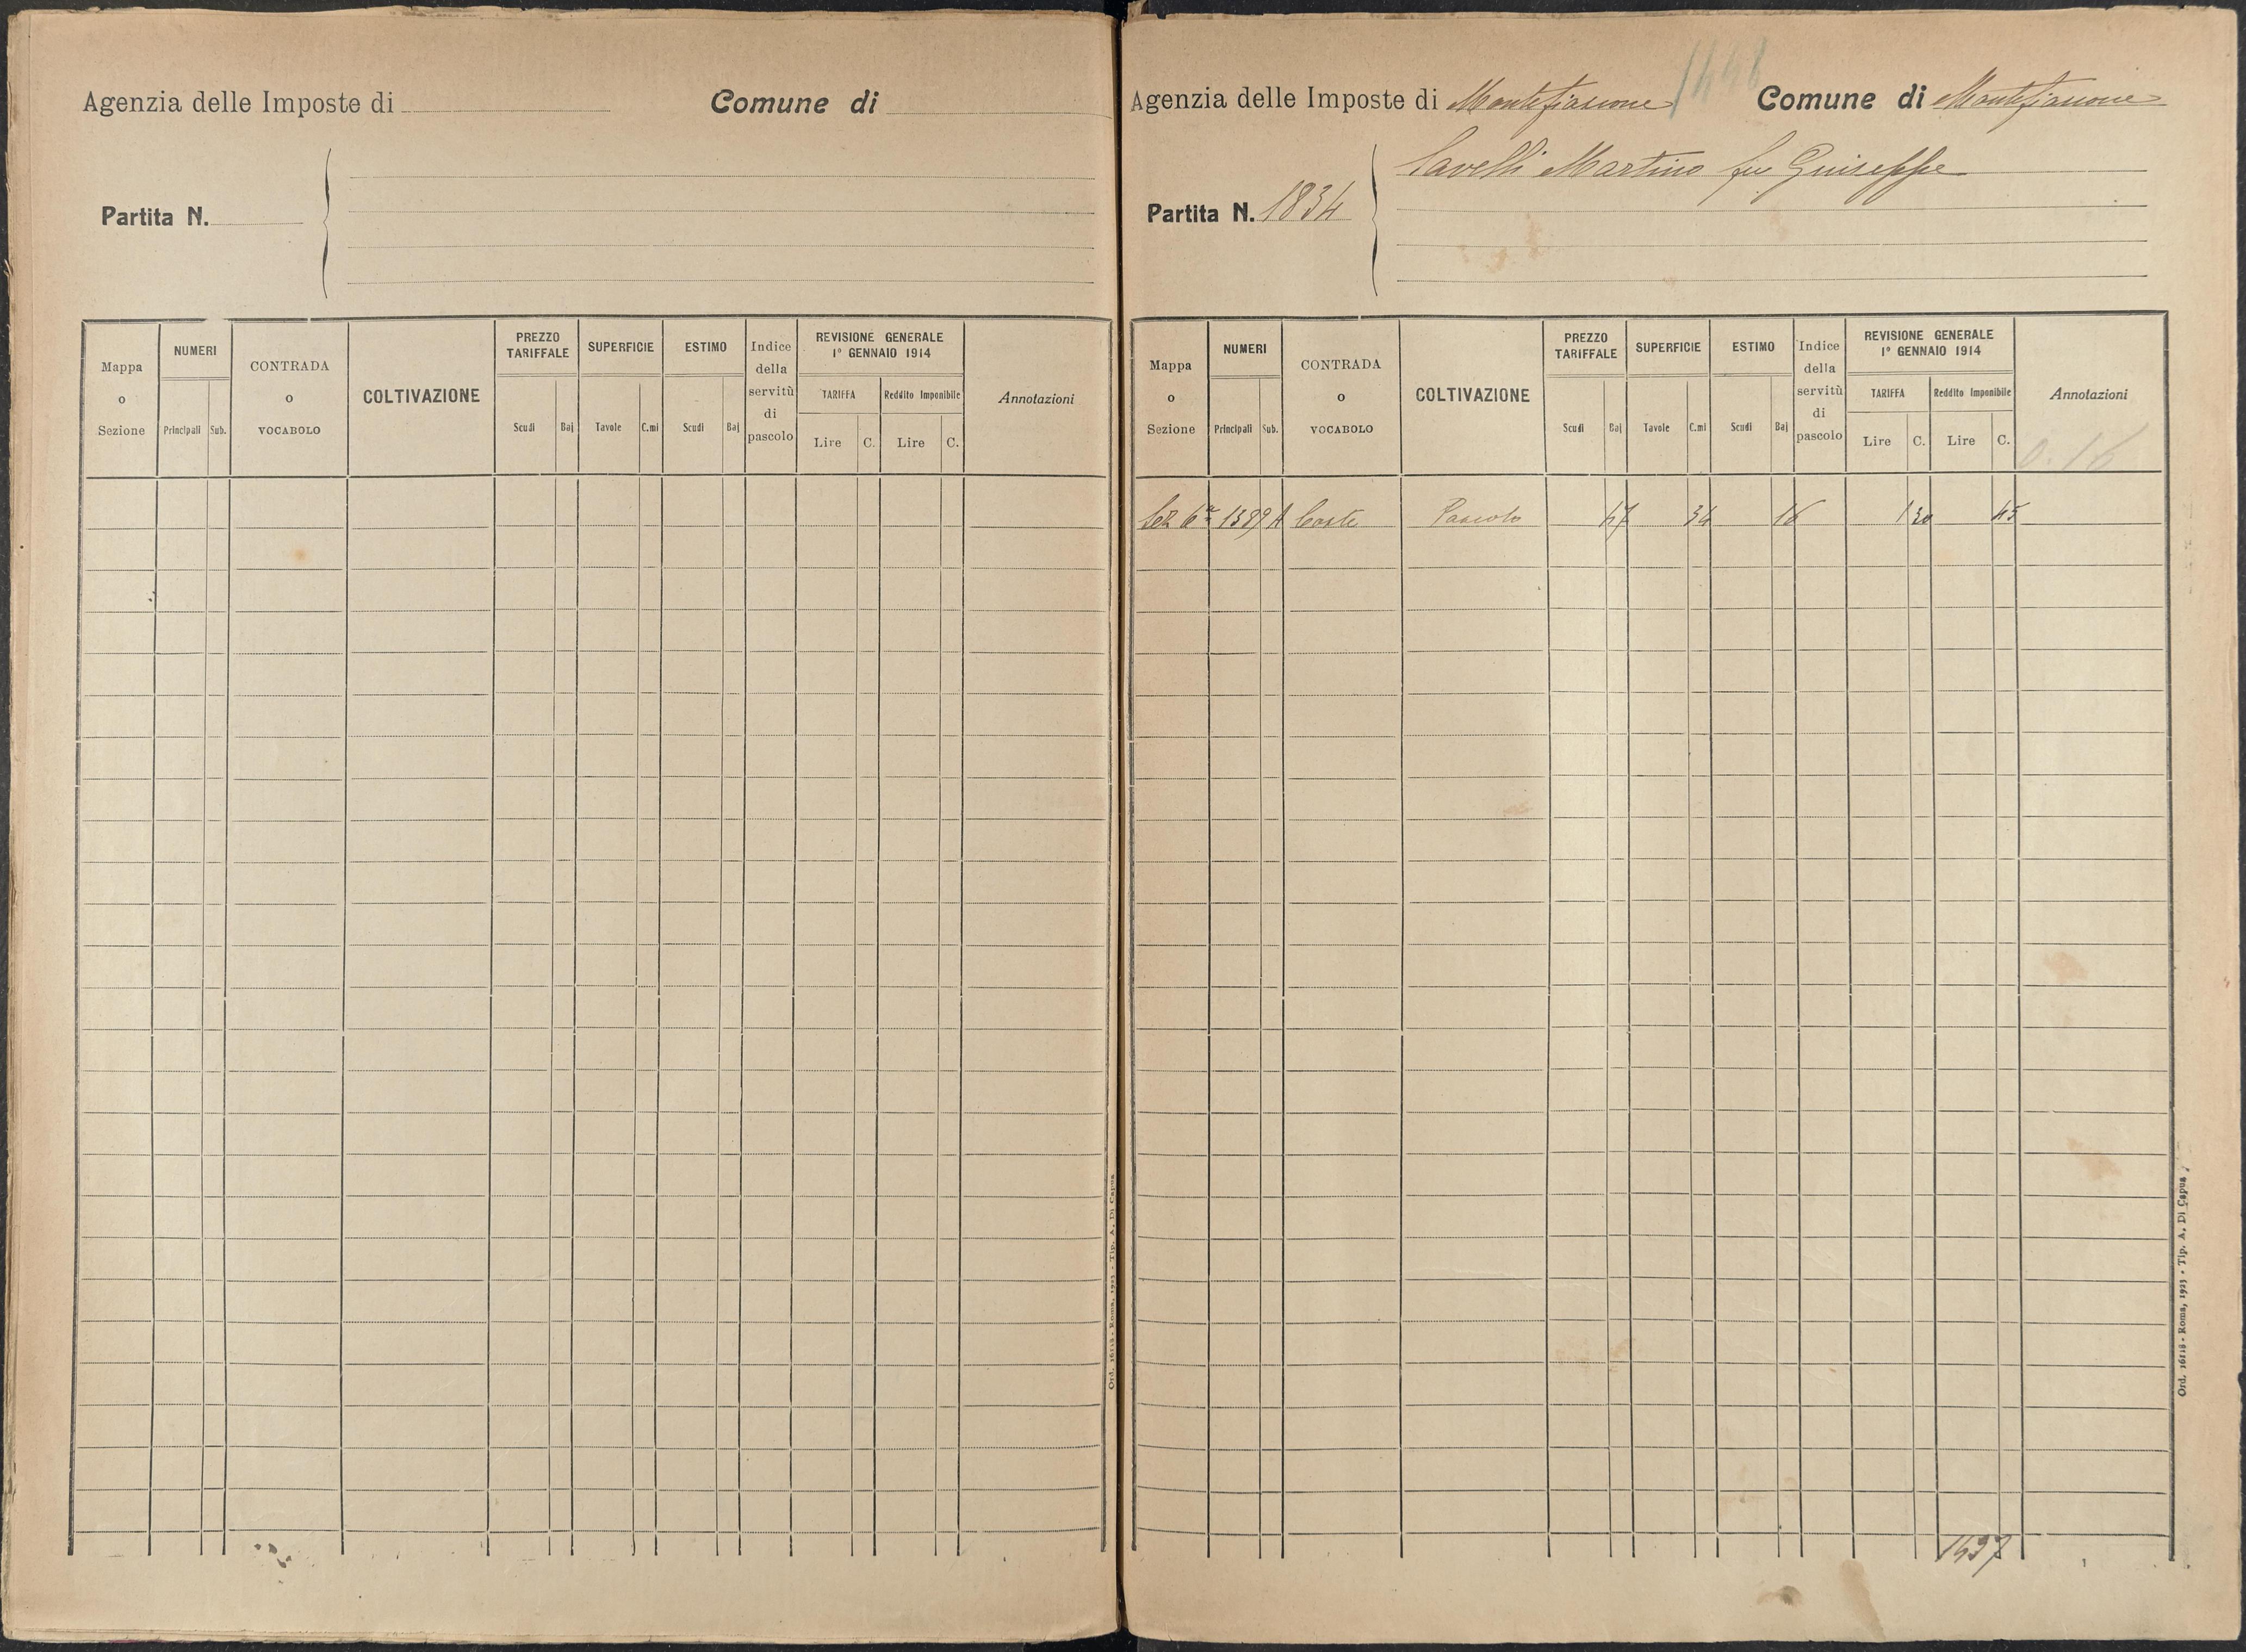 Agenzia delle Imposte di
Comune di
Partita N.
Mappa o Sezione
NUMERI
Principali
Sub.
CONTRADA o VOCABOLO
COLTIVAZIONE
PREZZO TARIFFALE
Scudi
Baj
SUPERFICIE
Tavole
C.mi
ESTIMO
Scudi
Baj
Indice della servitù di pascolo
REVISIONE GENERALE
1° GENNAIO 1914
TARIFFA
Reddito Imponibile
Lire
C.
Lire
C.
Annotazioni
Ord. 16118 - Roma, 1923 - Tip. A. Di Capua
Agenzia delle Imposte di Montefiascone
Comune di Montefiascone
Cavelli Martino fu Giuseppe
Partita N. 1834
Mappa o Sezione
NUMERI
Principali
Sub.
CONTRADA o VOCABOLO
COLTIVAZIONE
PREZZO TARIFFALE
Scudi
Baj
SUPERFICIE
Tavole
C.mi
ESTIMO
Scudi
Baj
Indice della servitù di pascolo
REVISIONE GENERALE
1° GENNAIO 1914
TARIFFA
Reddito Imponibile
Lire
C.
Lire
C.
Annotazioni
0.16
Sez 6ª 1389 A Coste Pascolo 47 34 16 1 30 45
1437
Ord. 16118 - Roma, 1923 - Tip. A. Di Capua